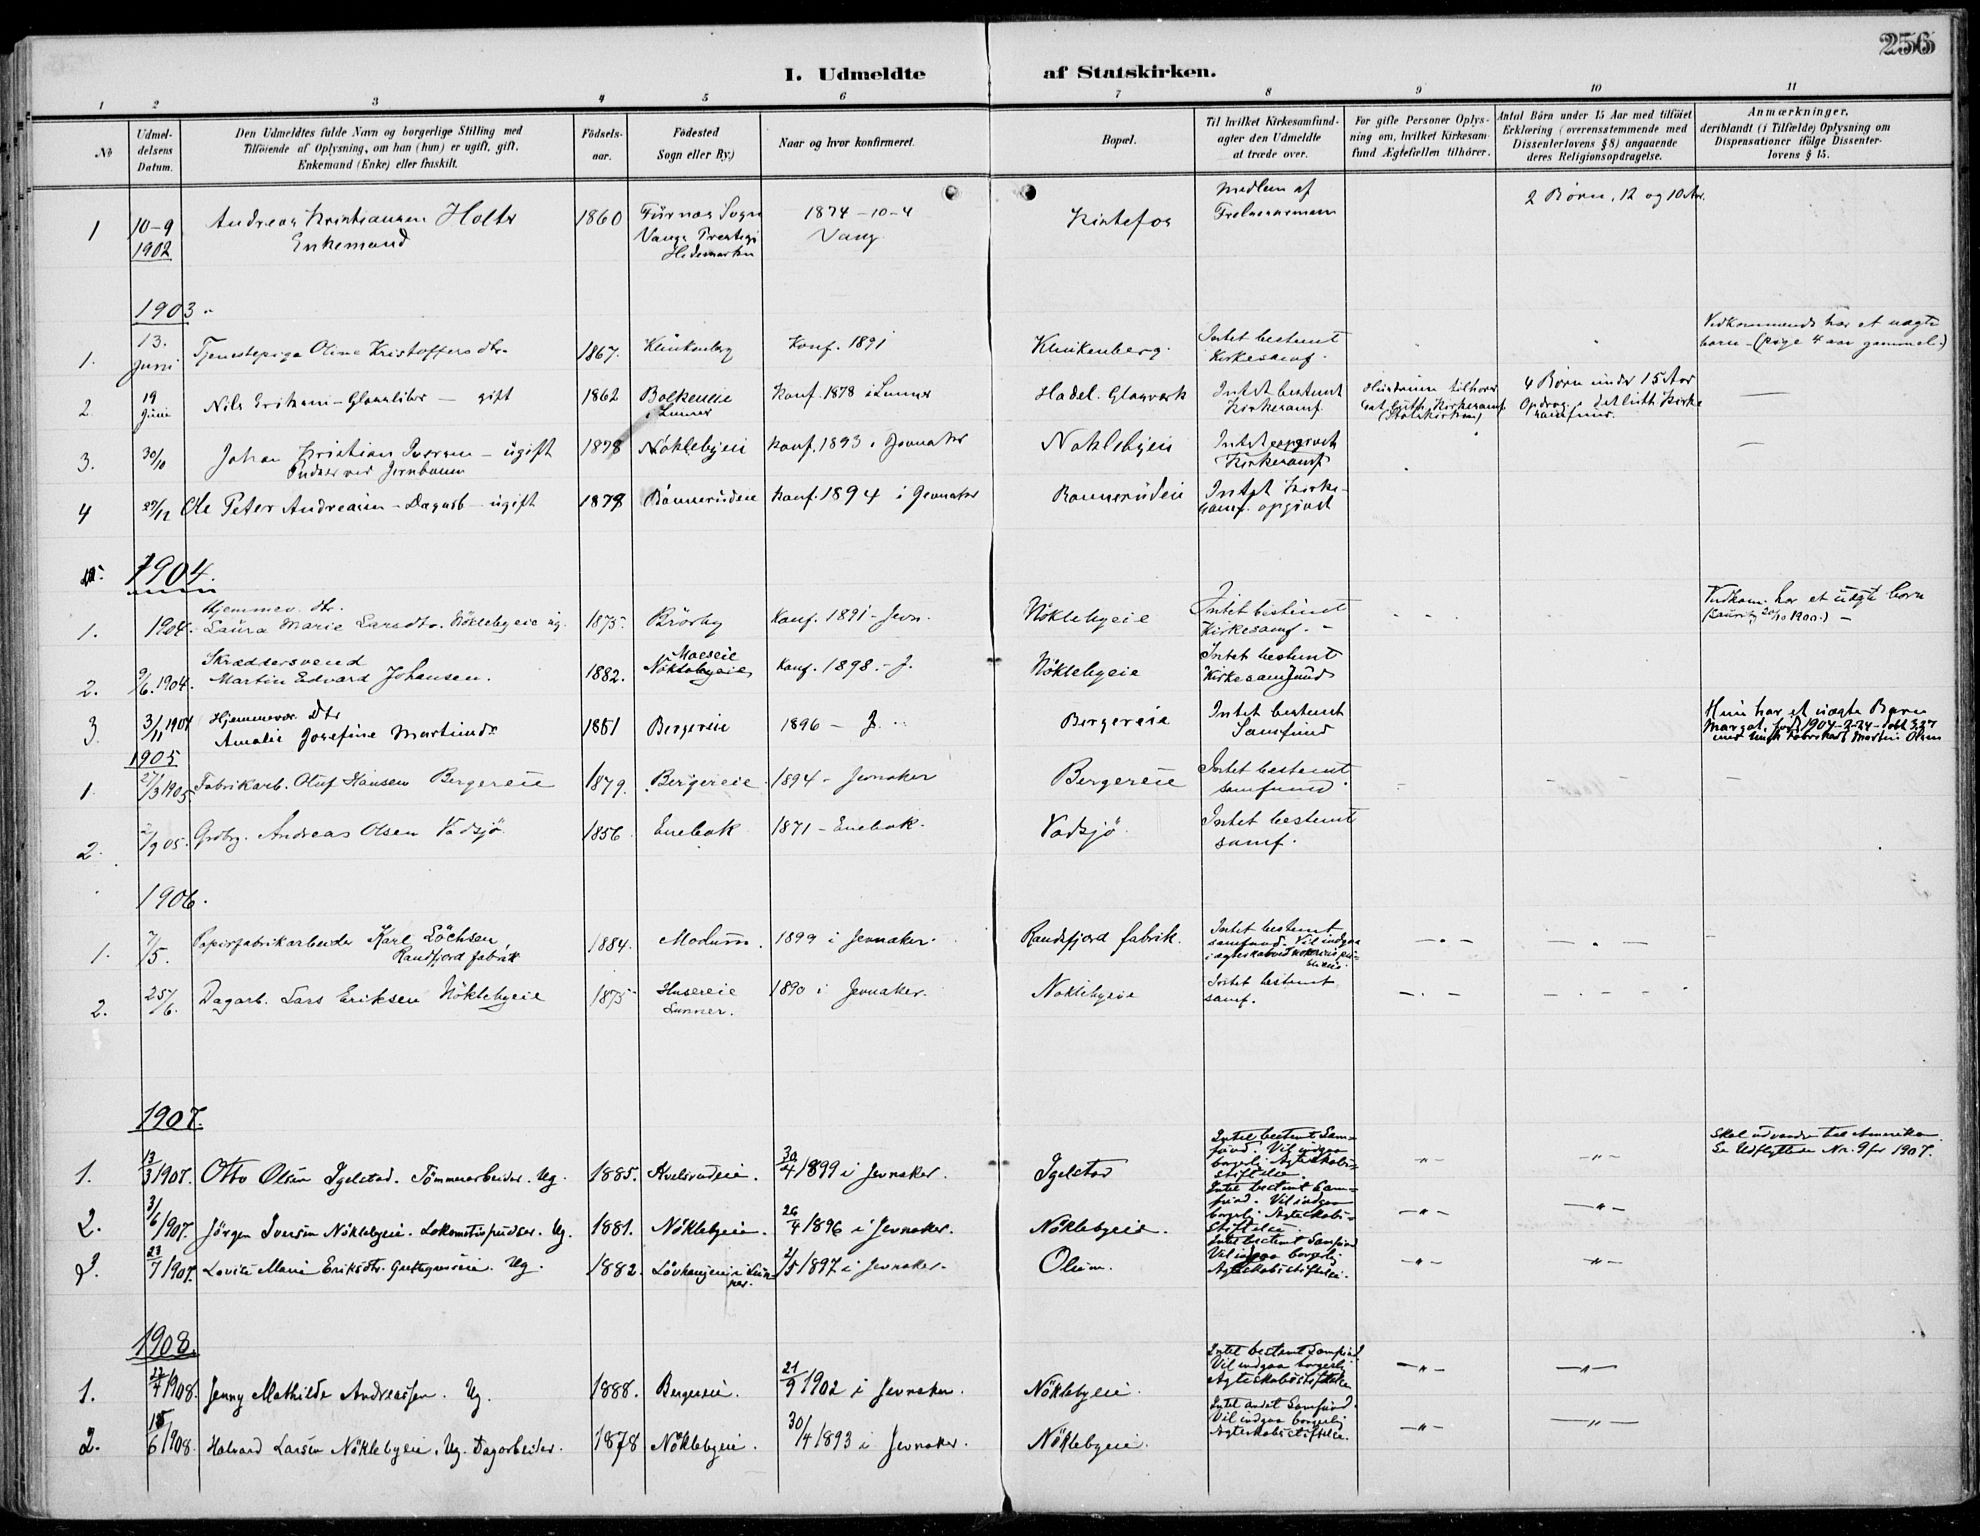 256
I. Udmeldte af Statskirken.
1 2 3 4 5 6 7 8 9 10 11
No
Udmeldelsens Datum.
Den Udmeldtes fulde Navn og borgerlige Stilling med
Tilföiende af Oplysning, om han (hun) er ugift, gift,
Enkemand (Enke) eller fraskilt.
Födselsaar.
Födested
Sogn eller By.)
Naar og hvor konfirmeret.
Bopæl.
Til hvilket Kirkesamfund-
agter den Udmeldte
at træde over.
For gifte Personer Oplys-
ning om, hvilket Kirkesam-
fund Ægtefællen tilhører.
Antal Börn under 15 Aar med tilföiet
Erklæring (overensstemmende med
Dissenterlovens § 8) angaaende
deres Religionsopdragelse.
Anmærkninger,
deriblandt (i Tilfælde) Oplysning om
Dispensationer ifölge Dissenter-
lovens § 15.
1 10-9 1902 Andreas Kristiansen Holter Enkemand 1860 Furnes Sogn Vangs Prestegj Hedemarken 1874-10-4 Vang Kistefos Medlem af Frelsesarmeen 2 Børn, 12 og 10 Aar.
1903.
1. 13. Juni Tjenestepige Oline Kristoffersdtr. 1867. Klinkenberg Konf. 1891 Klinkenberg. Intet bestemt Kirkesamf. Vedkommende har et uægte barn - (pige 4 aar gammel.)
2. 19 Juni Nils Eriksen - Glassliber - gift 1862 Bolkeneie i Lunner Konf. 1878 i Lunner Hadel. Glasverk Intet bestemt Kirkesamf. Hustruen tilhører Evt. luth. Kirkesamf (Statskirken) 4 Børn under 15 Aar Opdrag. i det luth Kirkesamfund. —
3. 30/10 Johan Kristian Iversen - ugift Pudser ved Jernbanen 1878 Nøklebyeii Konf. 1893 i Jevnaker Noklebyeii Intet opgivet Kirkesamf —
4 29/12 Ole Peter Andreasen - Dagarb - ugift 1879 Bønnerudeie Konf. 1894 i Jevnaker Bønnerudeie Intet Kirke-samf. opgivet
1904.
1. 1904. Hjemmev. dtr. Laura Marie Larsdtr. Nöklebyeie ug. 1875. Brörby Konf. 1891 - Jevn. Nöklebyeie Intet bestemt Kirkesamf. - Vedkom. har et uægte barn (Lauritz 20/10 1900.) -
2. 9/6. 1904. Skrædersvend Martin Edvard Johansen. 1882. Moeseie Nöklebyeie Konf. 1898. - J. Nöklebyeie Intet bestemt Kirkesamfund
3. 3/11 1904 Hjemmevær. Dtr Amalie Josefine Martinsdr 1881 Bergereie 1896 - J. Bergereie Intet bestemt Samfund Hun har et uægte Barn Margot, født 1904-2-24 - døbt 3/7 med Fabrikarb Martin Olsen
1905
1. 27/3 1905. Fabrikarb. Oluf Hansen Bergereie 1879. Bergereie 1894 - Jevnaker Bergereie Intet bestemt samfund. -
2. 2/9 05. Grbbg. Andreas Olsen Vadsjö 1856. Enebak 1871 - Enebak. Vadsjö. Intet bestemt samf.
1906.
1. 7/5. Papirfabrikarbeider Karl Löchsen, Randfjord fabrik 1884. Modum. 1899 i Jevnaker. Randsfjord fabrik. Intet bestemt samfund. Vil indgaa i ægteskab — . — — . —
2. 25/6. Dagarb. Lars Eriksen Nöklebyeie 1875 Husereie Lunner. 1890 i Jevnaker. Nöklebyeie Intet bestemt samf. — . — — . —
1907.
1. 13/3 1907. Otto Olsen Igelstad. Tömmerarbeider. Ug. 1885. Kvelsrudeie. 30/4 1899 i Jevnaker. Igelstad Intet bestemt Sam-fund. Vil indgaa borgerlig Ægteskabs-stiftelse. —"— —"— Skal udvandre til Amerika. Se Udflyttede Nr. 9 for 1907.
2. 3/6 1907. Jörgen Iversen Nöklebyeie. Lokomotivpudser. Ug. 1881. Nöklebyeie. 26/4 1896 i Jevnaker. Nöklebyeie. Intet bestemt Sam-fund. Vil indgaa borgerlig Ægteskabs-stiftelse. —"— —"—
3. 23/7 1907. Lovise Marie Eriksdtr. Ug. 1882. i Lunner. 2/5 1897 i Jevnaker. Olum. Intet bestemt Samfund Vil indgaa borgerlig Ægteskabsstiftelse. —"— —"—
1908.
1. 22/4 1908. Jenny Mathilde Andreassen. Ug. 1888. Bergereie. 21/9 1902 i Jevnaker. Nöklebyeie. Intet bestemt Samfund. Vil indgaa borgerlig Ægteskabsstiftelse —"— —"—
2. 15/6 1908. Halvard Larsen Nöklebyeie. Ug. Dagarbeider. 1878 Nöklebyeie. 30/4 1893 i Jevnaker. Nöklebyeie. Intet andet Samfund. Vil indgaa borgerlig Ægteskabsstiftelse. —"— —"—